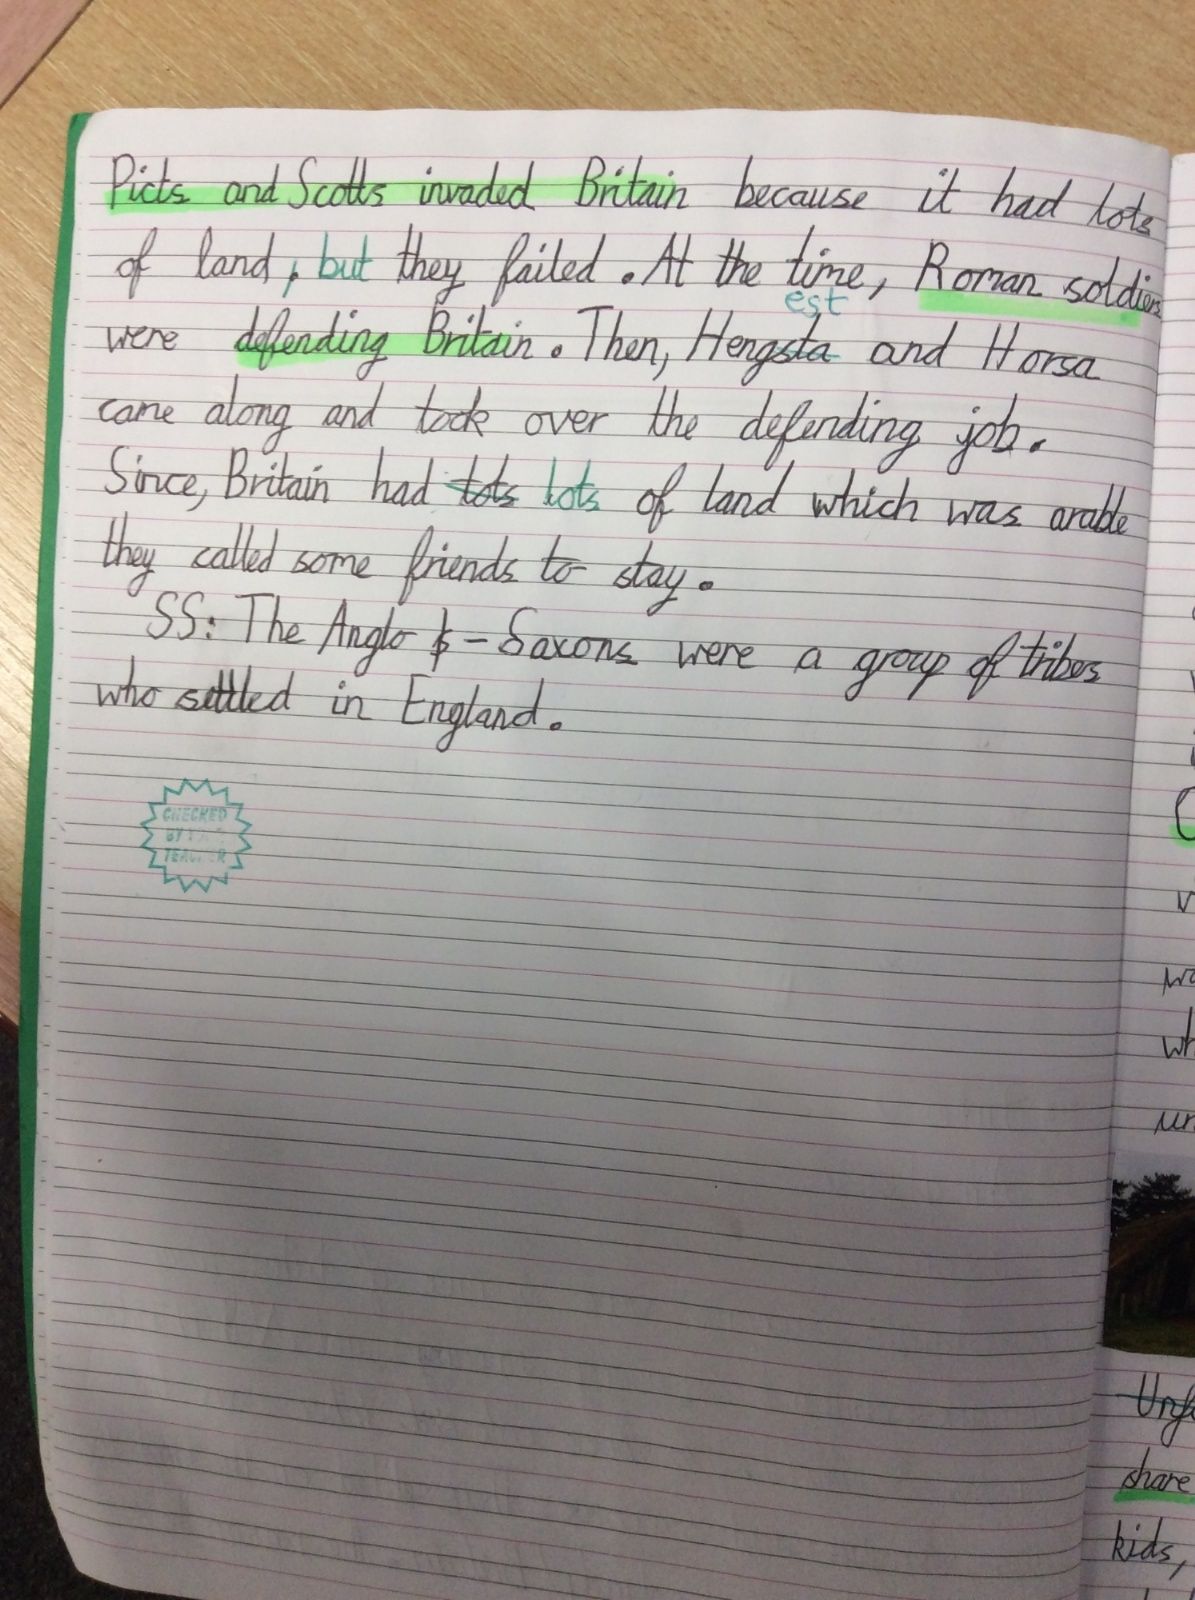 Picts and Scotts invaded Britain because it had lots
of land, but they failed. At the time, Roman soldiers
est
were defending Britain. Then, Hengsta and Horsa
came along and took over the defending job.
Since, Britain had tots lots of land which was arable
they called some friends to stay.
SS: The Anglo s - Saxons were a group of tribes
who settled in England.
CHECKED
BY YOUR
TEACHER
share
kids,